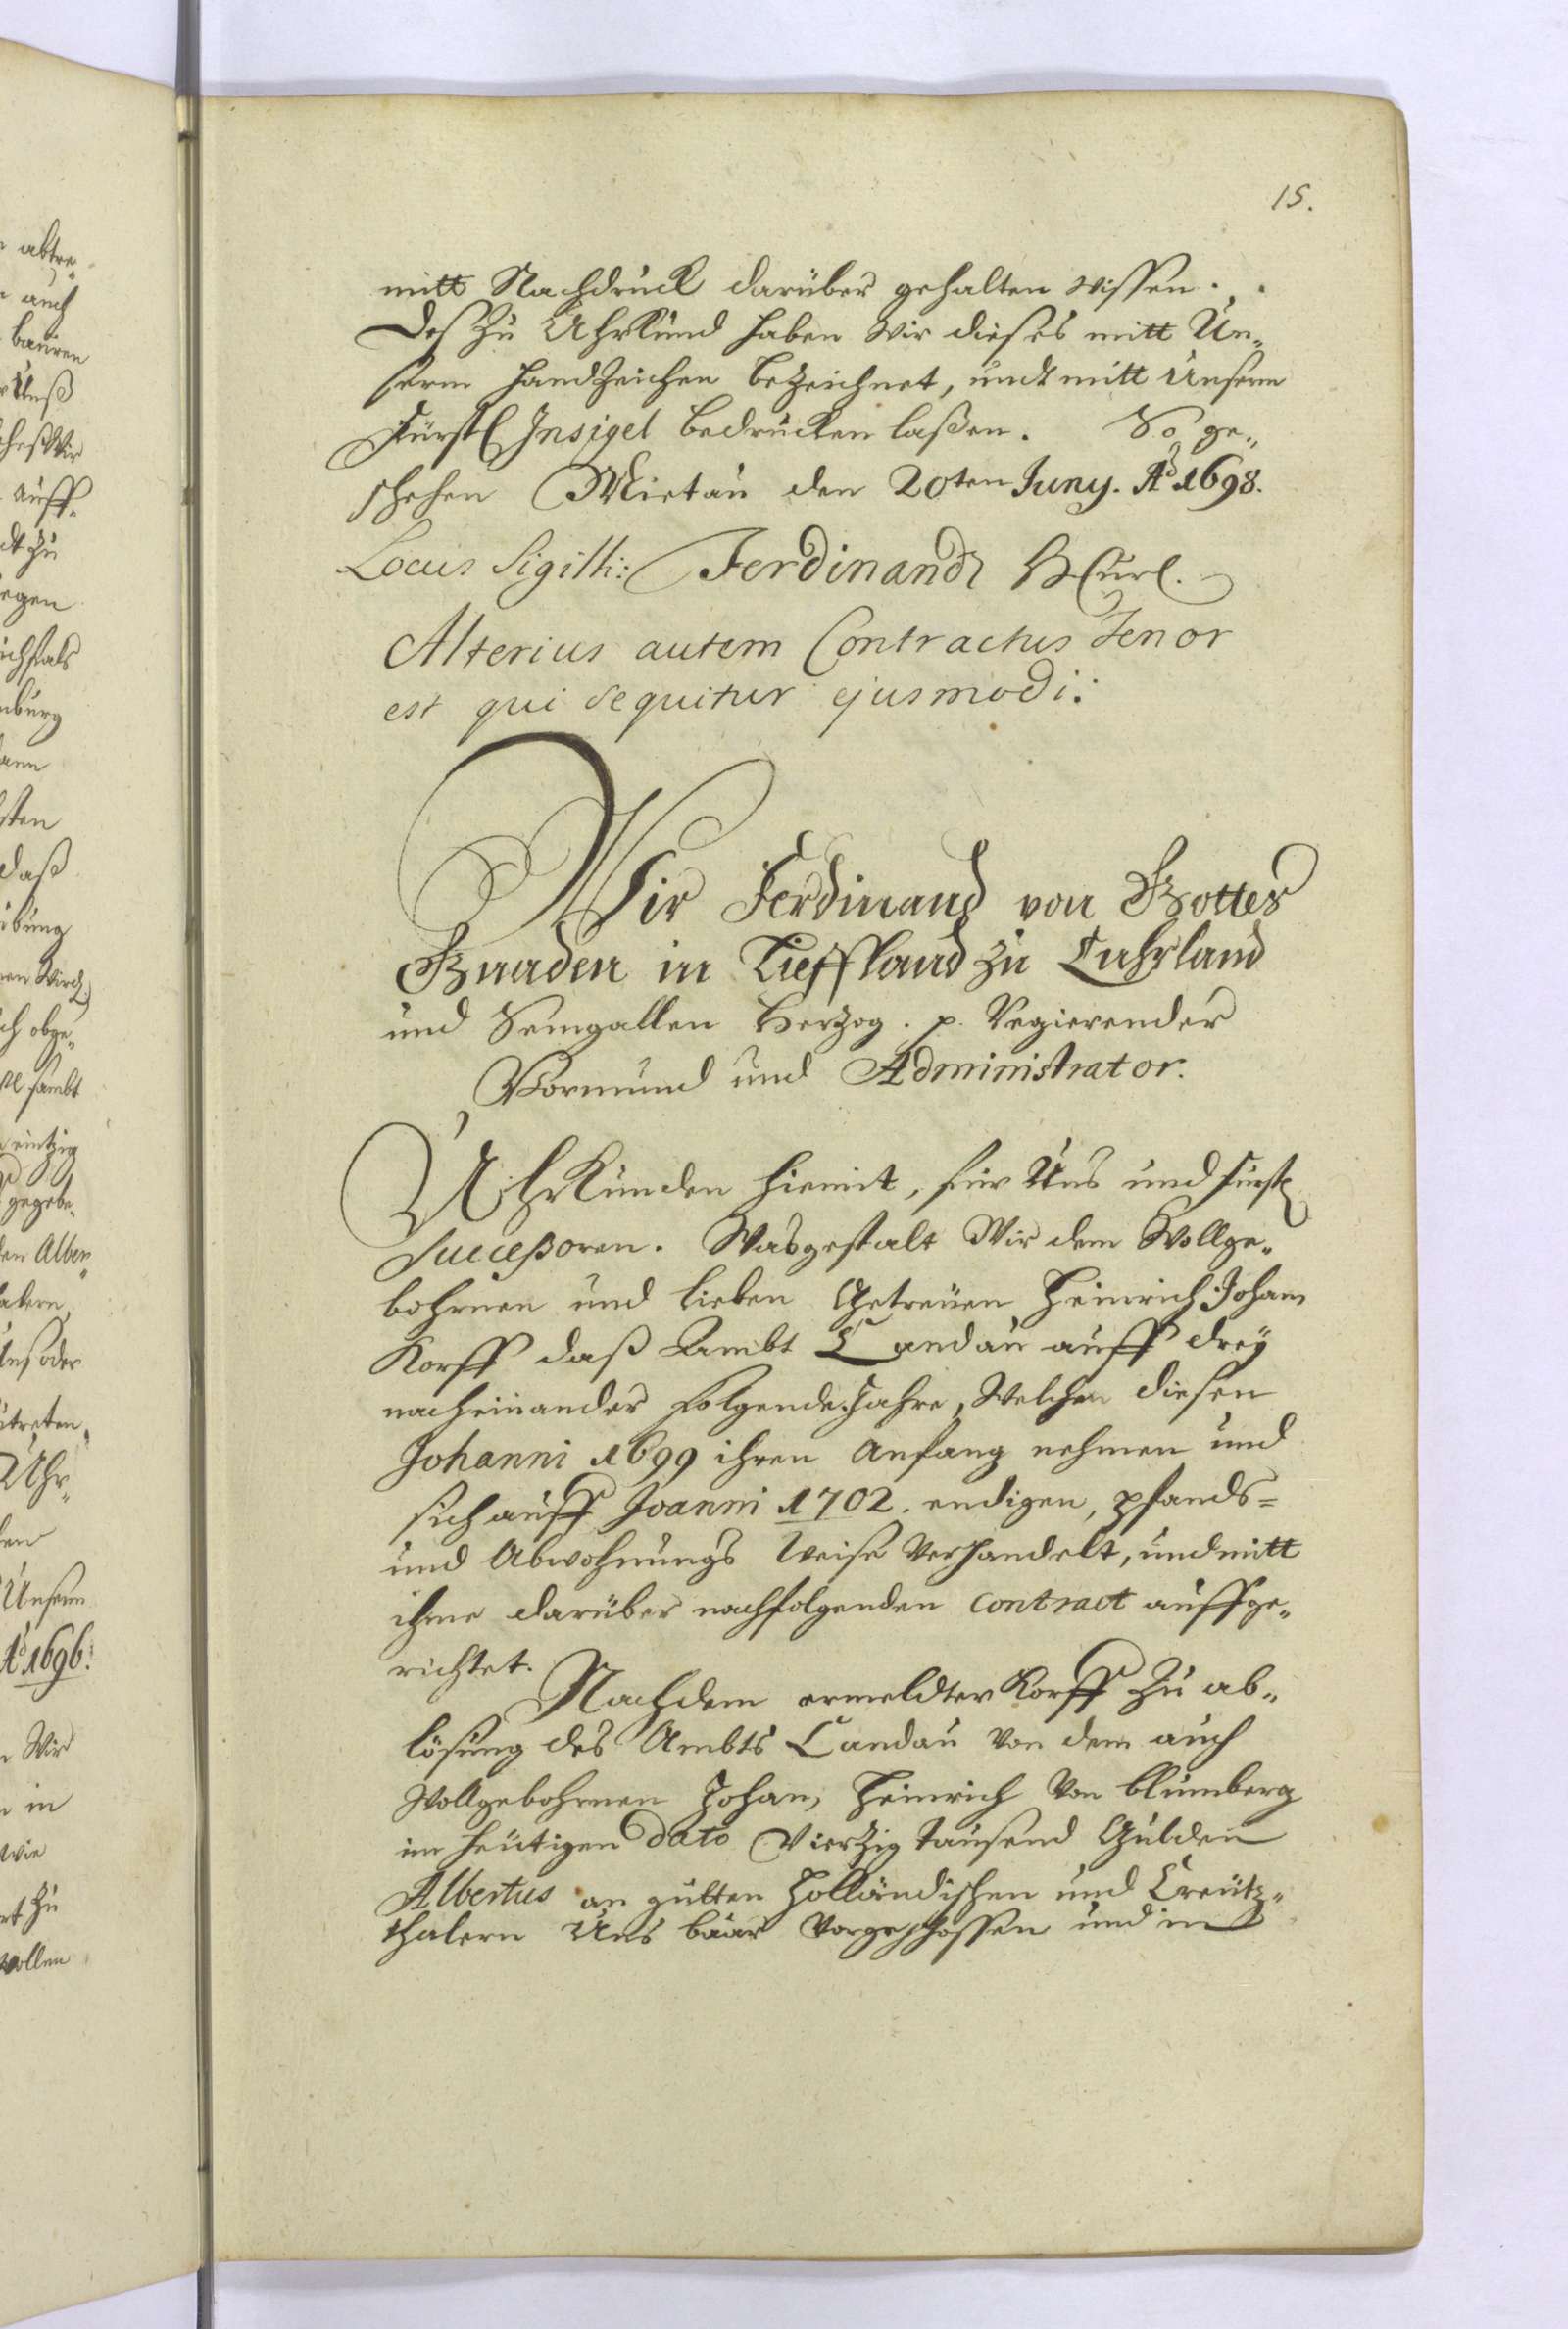 15.
mitt Nachdruck darüber gehalten wissen.
Des zu Uhrkund haben Wir dieses mitt Un-
serm Handzeichen bezeichnet, undt mitt Unserm
Fürstl Insigel bedrücken laßen. So ge-
schehen Mietau den 20ten Juny. Ao 1698.
Locus Sigilli: Ferdinandt H Curl.
Alterius autem Contractus Tenor
est qui sequitur ejusmodi:
Wir Ferdinand von Gottes
Gnaden in Lieffland zu Cuhrland
und Semgallen Herzog. p. Regierender
Vormund und Administrator.
Uhrkunden hiemit, für Uns und fürstl
Succeßoren. Wasgestalt Wir dem Wollge-
bohrnen und lieben Getreüen Heinrich Johan
Korff daß Ambt Candau auff dreÿ
nacheinander folgende Jahre, Welchen diesen
Johanni 1699 ihren Anfang nehmen und
sich auff Joanni 1702. endigen, pfands-
und Abwohnungs Weise Verhandelt, und mitt
ihme darüber nachfolgenden contract auffge-
richtet.
Nachdem ermeldter Korff zu ab-
lösung des Ambts Candau von dem auch
Wollgebohrnen Johan, Heinrich von Blumberg
im heütigen dato Vierzig tausend Gulden
Albertus an gutten Holländischen und Creütz-
thalern Uns baar Vorgeschossen und in
abtre-
auch
bauren
Auff-
dt zu
egen
nburg
sten
daß
ibung
ch obge-
sambt
eintzig
gegebe-
den Alber-
alern
Uns oder
utreten,
Uhr-
Unserm
Ao 1696.
Wir
in
wie
rt zu
wollen